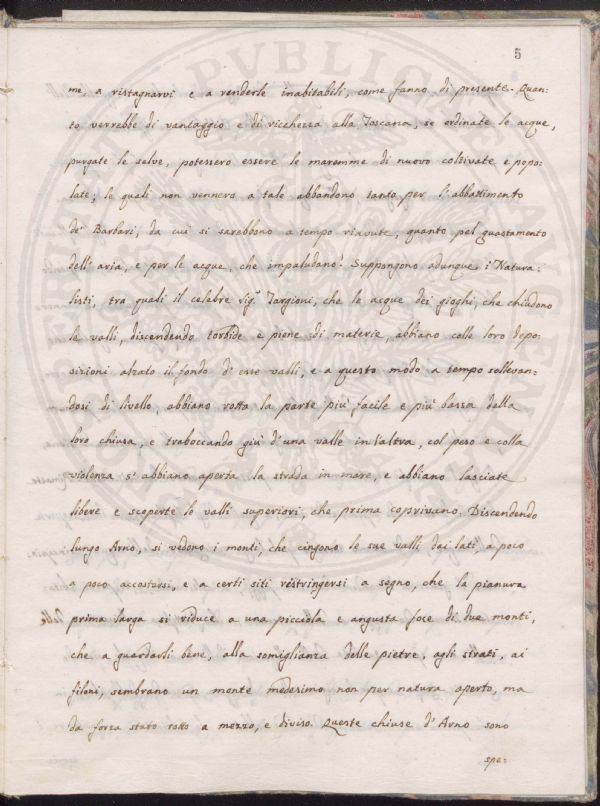 5
me, a ristagnarvi e a renderle inabitabili, come fanno di presente. Quan:
to verrebbe di vantaggio e di ricchezza alla Toscana, se ordinate le acque,
purgate le selve, potessero essere le maremme di nuovo coltivate e popo:
late; le quali non vennero a tale abbandono tanto per l'abbattimento
de' Barbari, da cui si sarebbono a tempo riavute, quanto pel guastamento
dell'aria, e per le acque, che impaludano! Suppongono adunque i Natura:
listi, tra quali il celebre Sig.r Targioni, che le acque dei gioghi, che chiudono
le valli, discendendo torbide e piene di materie, abbiano colle loro depo:
sizioni alzato il fondo d'esse valli, e a questo modo a tempo sollevan:
dosi di livello, abbiano rotta la parte più facile e più bassa della
loro chiusa, e traboccando giù d'una valle in l'altra, col peso e colla
violenza s'abbiano aperta la strada in mare, e abbiano lasciate
libere e scoperte le valli superiori, che prima coprivano. Discendendo
lungo Arno, si vedono i monti, che cingono le sue valli dai lati, a poco
a poco accostarsi, e a certi siti restringersi a segno, che la pianura
prima larga si riduce a una picciola e angusta foce di due monti,
che a guardarli bene, alla somiglianza delle pietre, agli strati, ai
filoni, sembrano un monte medesimo non per natura aperto, ma
da forza stato rotto a mezzo, e diviso. Queste chiuse d'Arno sono
spe: